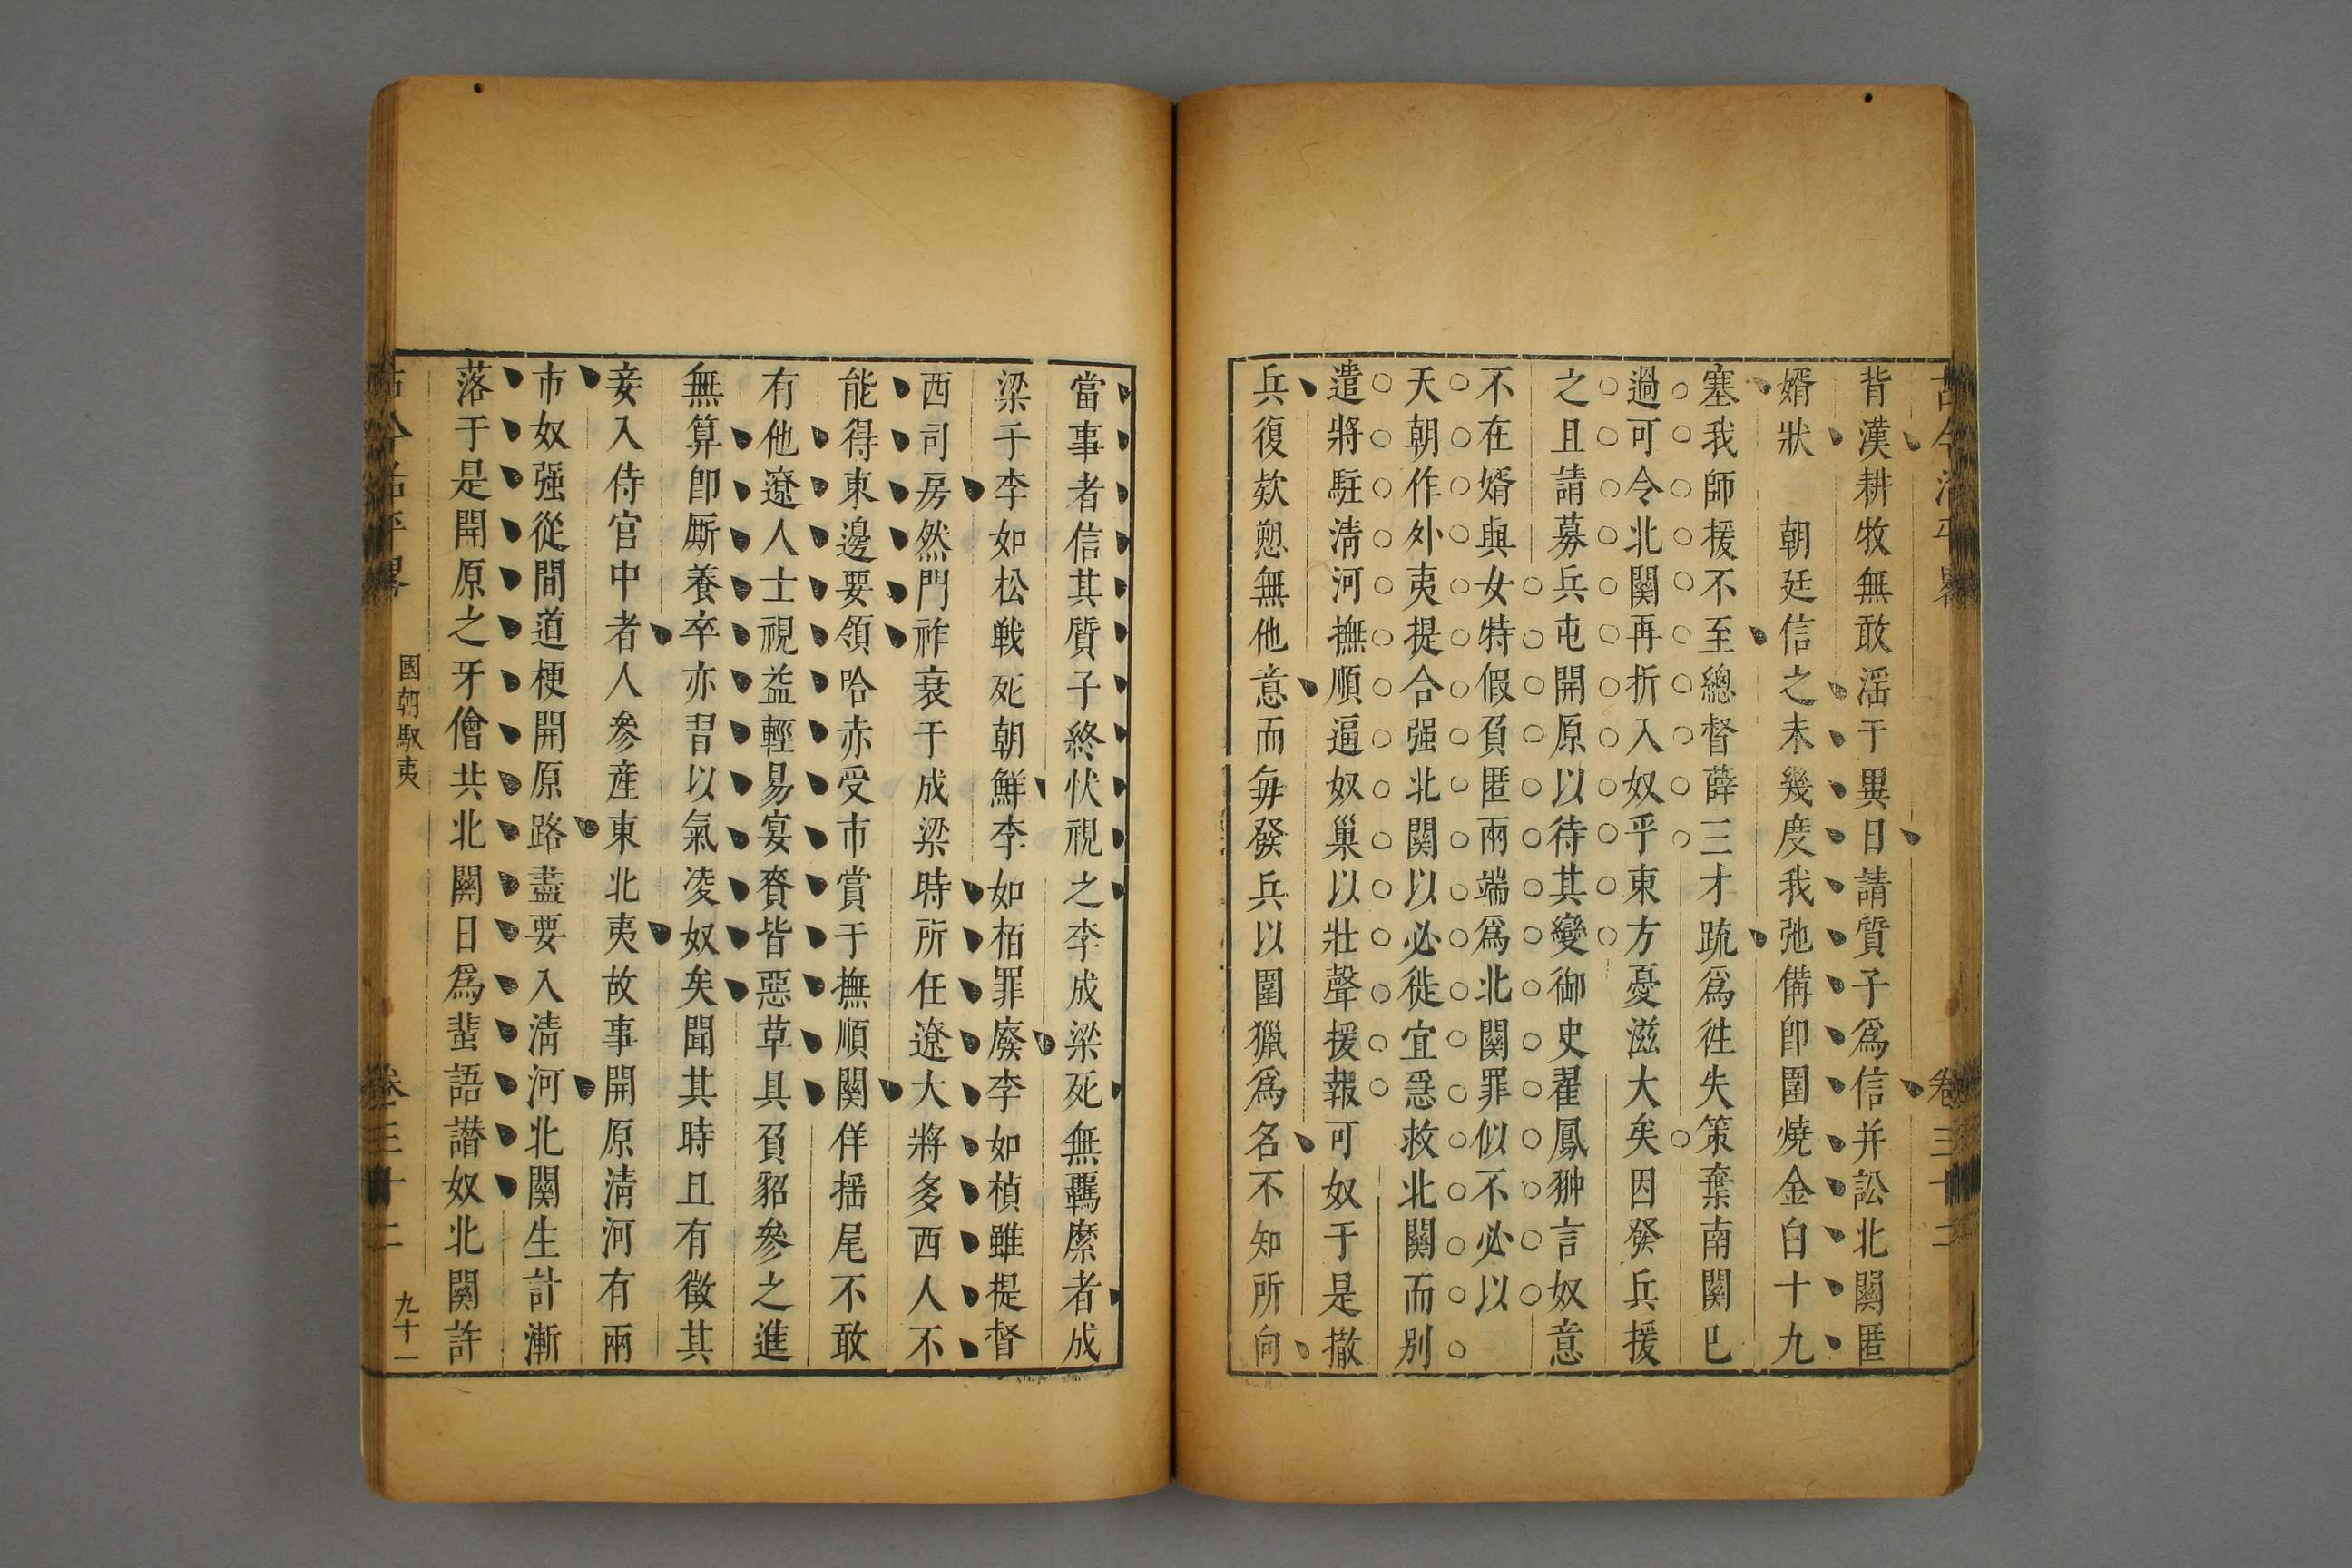 古今治平畧 卷三十二
背漢耕牧無敢滛于異日請質子爲信并訟北關匿
婿狀 朝廷信之未幾度我弛備卽圍燒金白十九
塞我師援不至總督薛三才疏爲徃失策棄南關已
過可令北關再折入奴乎東方憂滋大矣因發兵援
之且請募兵屯開原以待其變御史翟鳳翀言奴意
不在婿與女特假負匿兩端爲北關罪似不必以
天朝作外夷提合强北關以必徙宜急救北關而别
遣將駐淸河撫順逼奴巢以壯聲援報可奴于是撤
兵復欵懇無他意而每發兵以圍獵爲名不知所向
當事者信其質子終伏視之李成梁死無羈縻者成
梁于李如松戰死朝鮮李如栢罪廢李如楨雖提督
西司房然門祚衰于成梁時所任遼大將多西人不
能得東邊要領哈赤受市賞于撫順關佯揺尾不敢
有他遼人士視益輕易宴賚皆惡草具負貂參之進
無算卽厮養卒亦習以氣凌奴矣聞其時且有徵其
妾入侍官中者人參産東北夷故事開原淸河有兩
市奴强從間道梗開原路盡要入淸河北關生計漸
落于是開原之牙儈共北關日爲蜚語譖奴北關許
古今治平畧 國朝馭夷 卷三十二 九十一